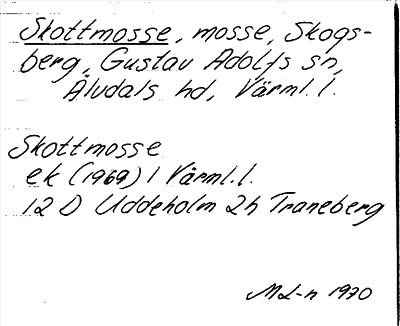 Skottmosse, mosse, Skogs-
berg, Gustav Adolfs sn,
Älvdals hd, Värml. l.
Skottmosse
ek (1969) / Värml. l.
12 D Uddeholm 2h Traneberg
ML-n 1970